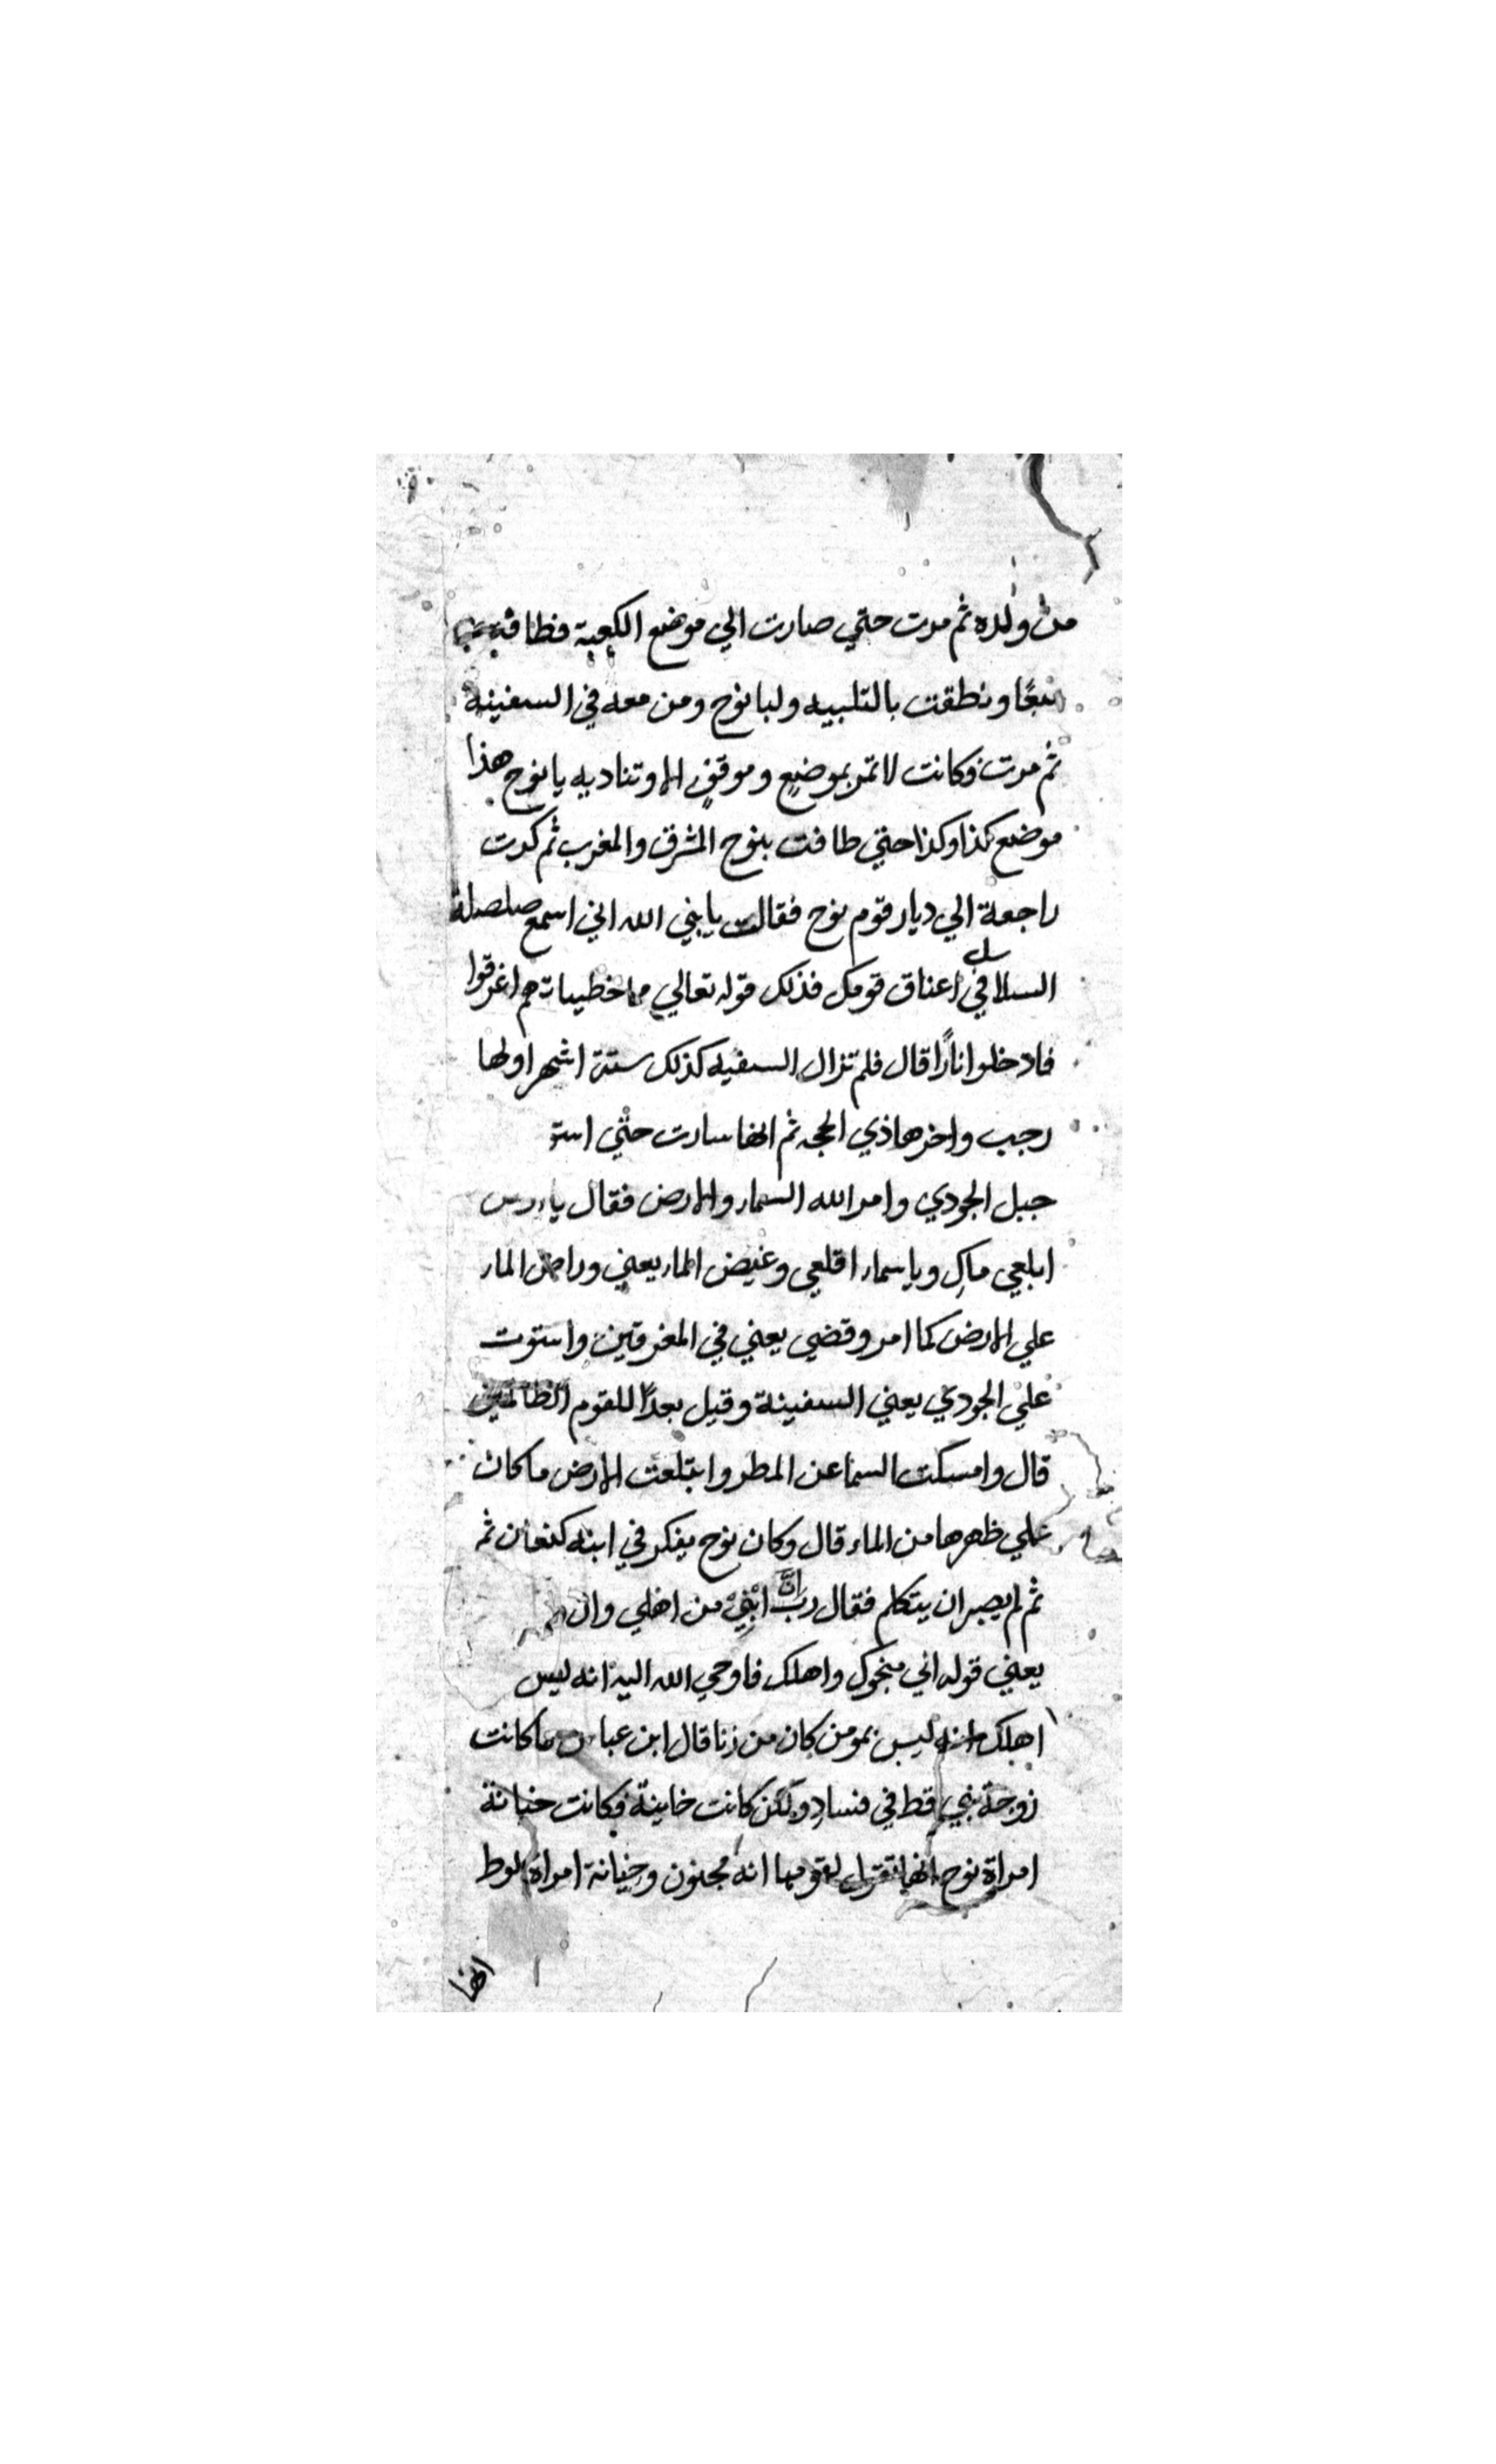 من ولده ثم مرت حتي صارت الي موضع الكعبة فطافت
سبعًا ونطقت بالتلبيه ولبا نوح ومن معه في السفينه
ثم مرت وكانت لا تمر بموضع وموقف الا وتناديه يا نوح هذا
موضع كذا وكذا حتي طافت بنوح المشرق والمغرب ثم كرت
راجعة الي ديار قوم نوح فقالت يا بني الله اني اسمع صلصلة
السلاسل في اعناق قومك فذلك قوله تعالي مما خطيباتهم اغرقوا
فادخلوا نارًا قال فلم تزال السفيه كذلك ستة اشهر اولها
رجب واخرها ذي الحجه ثم انها سارت حتي استو
جبل الجودي وامر الله السماء والارض فقال يا
ابلعي ماكِ ويا سماء اقلعي وغيض الماء يعني الماء
علي الارض كما امر وقضي يعني في المغرقين واستوت
علي الجودي يعني السفينة وقيل بعدًا للقوم الظالمين
قال وامسكت السما عن المطر وابتلعت الارض ما كان
علي ظهرها من الماء قال وكان نوح يفكر في ابنه كنعان ثم
ثم لم يصبر ان يتكلم فقال رب ان ابني من اهلي وان
يعني قوله اني منجوك واهلك فاوحي الله اليه انه ليس
اهلك ليس بمومن كان من زنا قال ابن عباس ما كانت
زوجة بني قط في فساد ولكن كانت خاينة فكانت خيانة
امراة نوح انها تقول لقومها انه مجنون وخيانة امراة لوط
انها